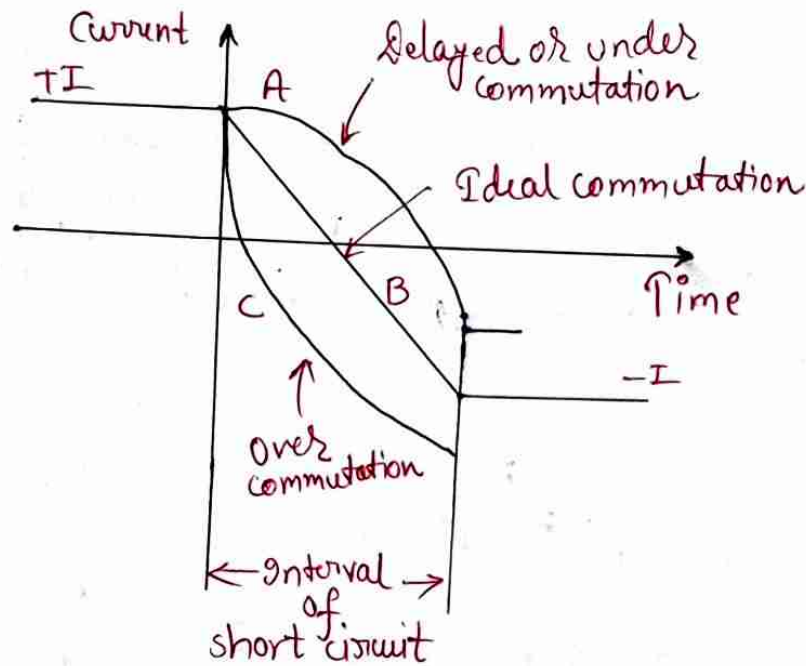 Current
+I
A
Delayed or under
commutation
Ideal commutation
B
C
Time
-I
Over
commutation
Interval
of
short circuit